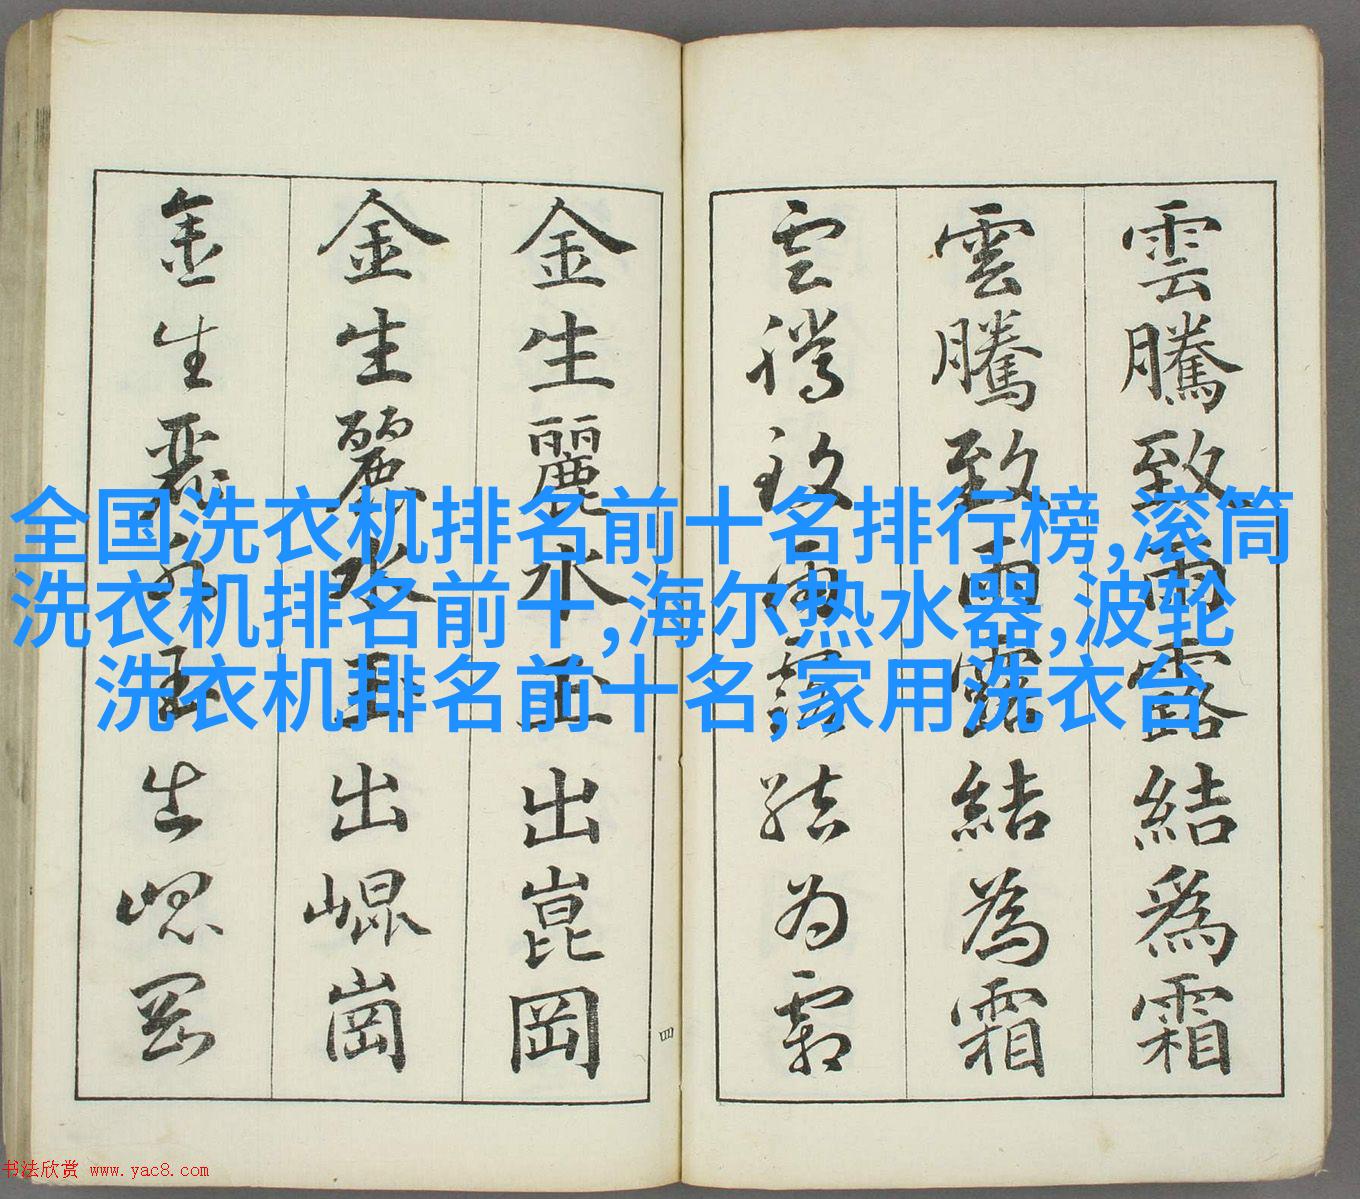 雲騰致雨露結爲霜
雲騰致雨露結為霜
雲騰致雨露結为霜
金生麗水玉出崑岡
金生麗水玉出崐崗
金生麗水玉出崐岡
四
全国洗衣机排名前十名排行榜,滚筒
洗衣机排名前十,海尔热水器,波轮
洗衣机排名前十名,家用洗衣台
书法欣赏 www.yac8.com